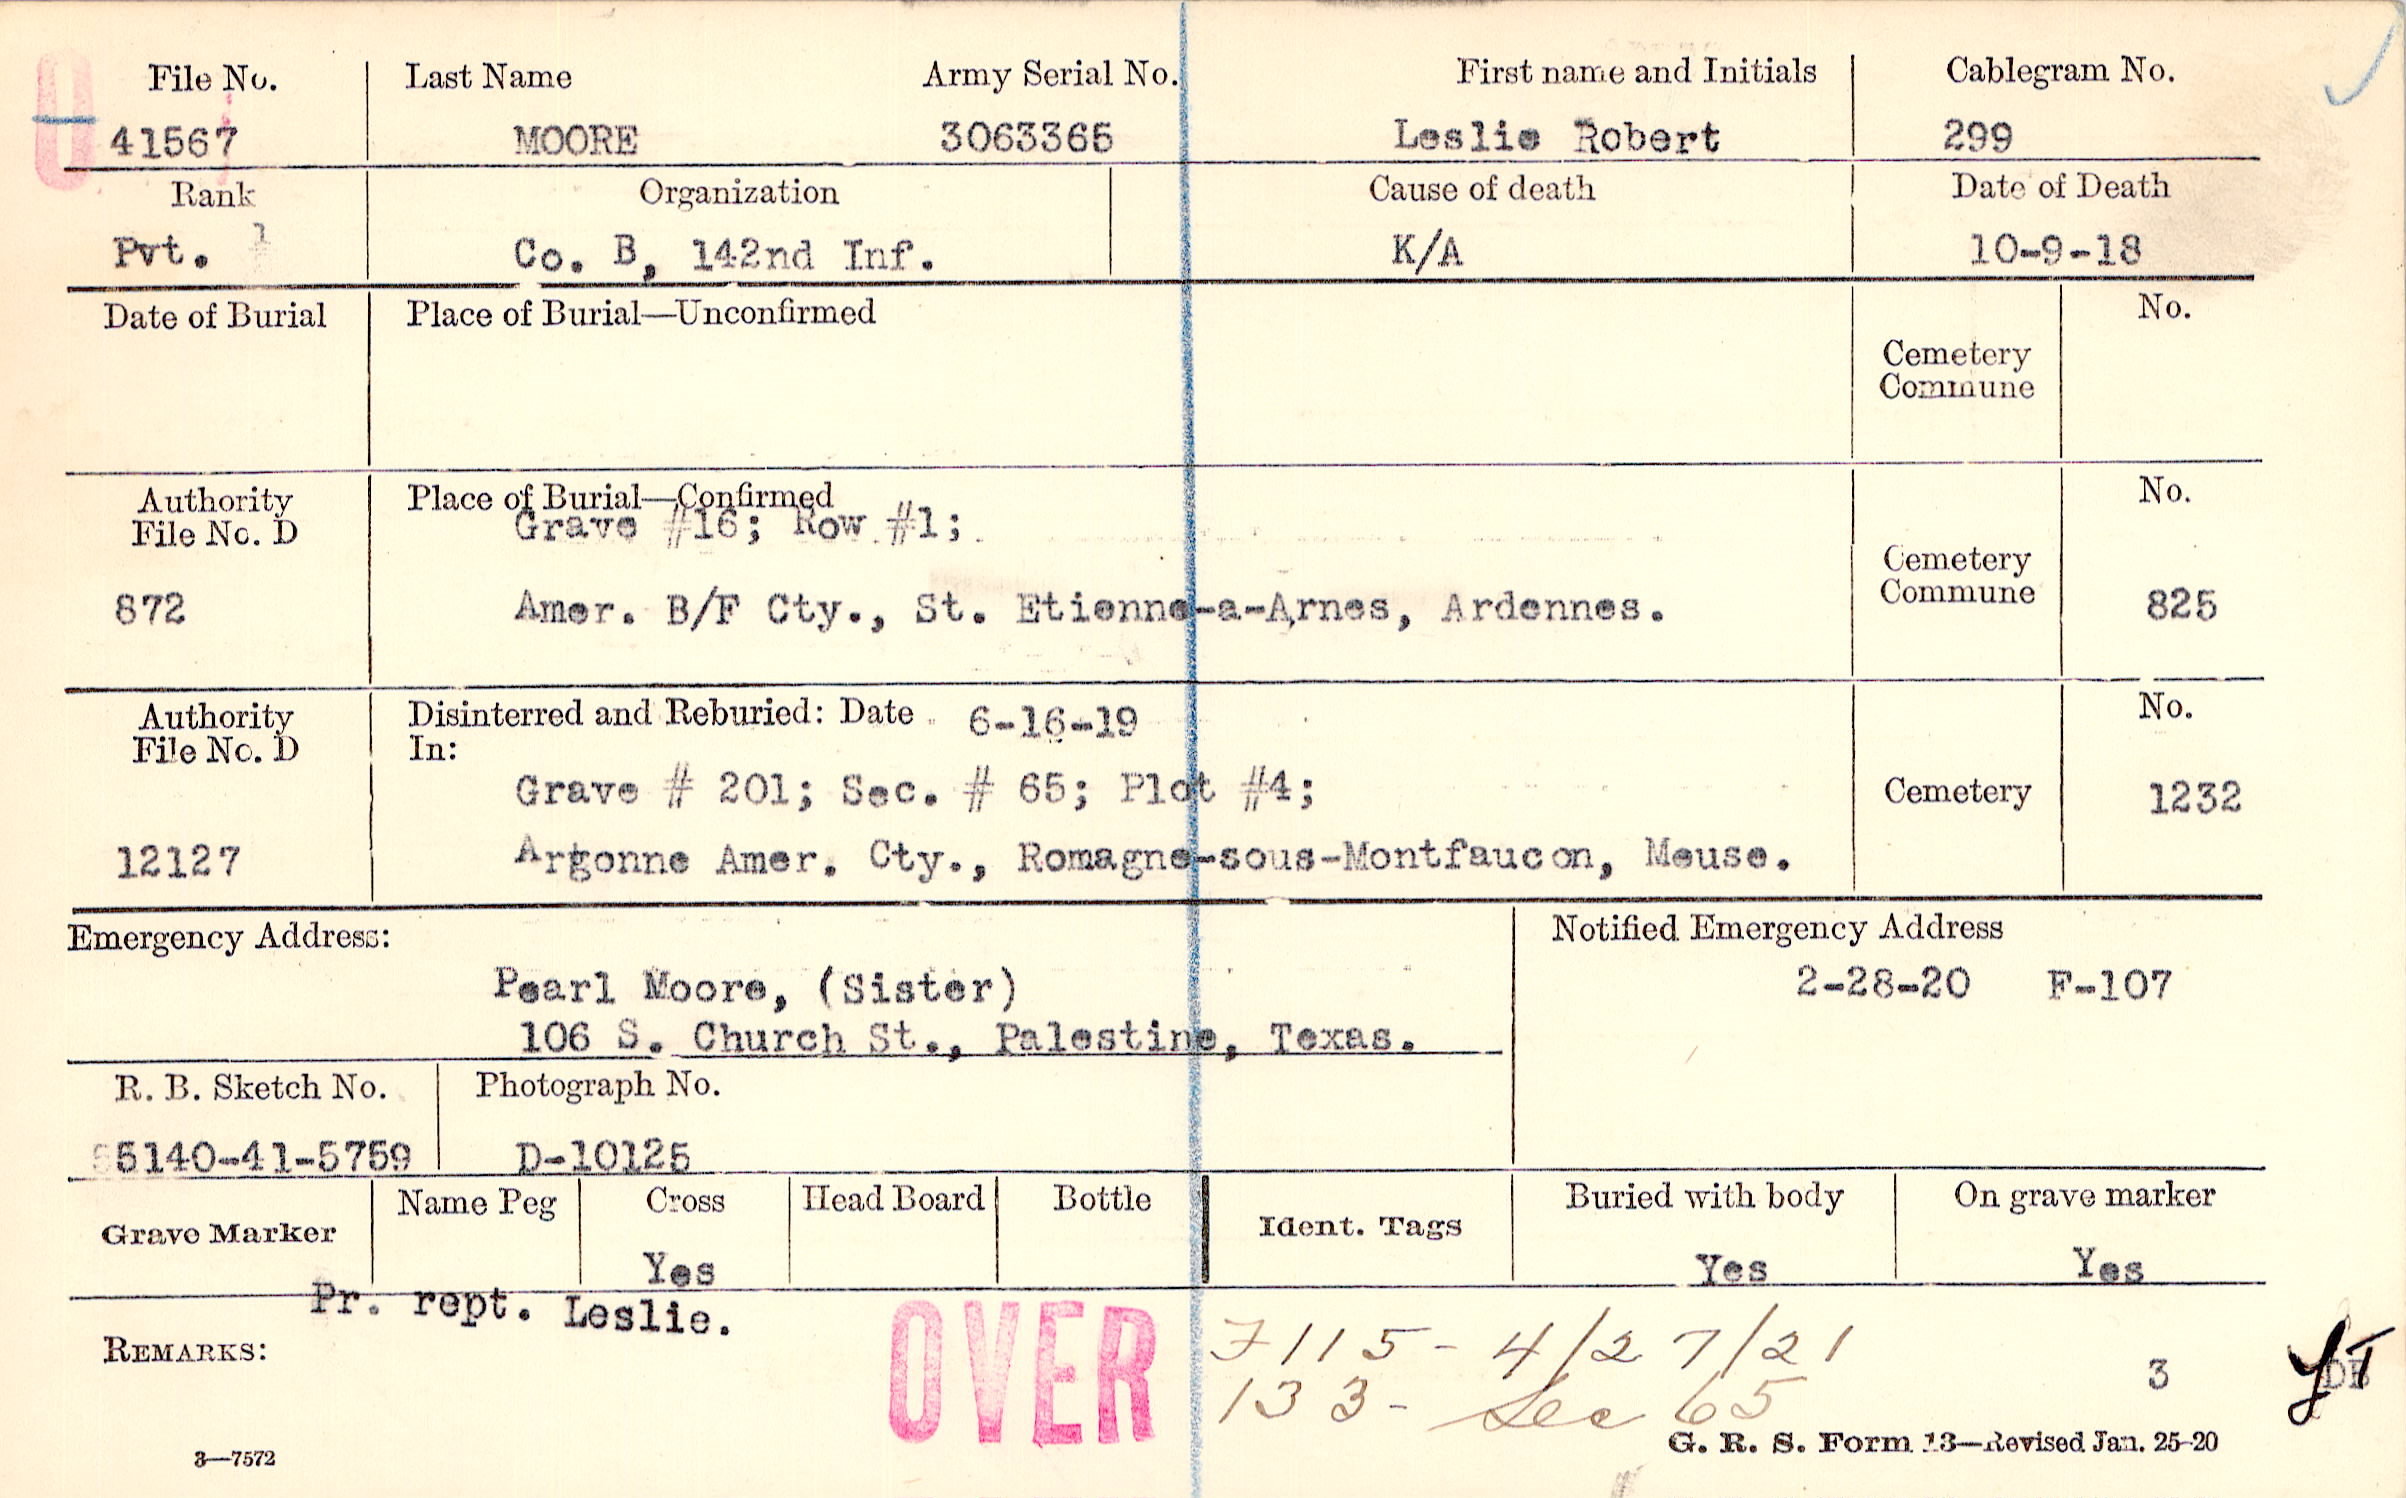 File No. Last Name Army Serial No. First name and Initials Cablegram No.
41567 MOORE 3063365 Leslie Robert 299
Rank Organization Cause of death Date of Death
Pvt. 1 Co. B, 142nd Inf. K/A 10-9-18
Date of Burial Place of Burial—Unconfirmed No.
Cemetery
Commune
Authority Place of Burial—Confirmed No.
File No. D Grave #16; Row #1;
Cemetery
Commune
872 Amer. B/F Cty., St. Etienne-a-Arnes, Ardennes. 825
Authority Disinterred and Reburied: Date 6-16-19 No.
File No. D In:
Grave # 201; Sec. # 65; Plot #4; Cemetery 1232
12127 Argonne Amer. Cty., Romagne-sous-Montfaucon, Meuse.
Emergency Address: Notified Emergency Address
Pearl Moore, (Sister) 2-28-20 F-107
106 S. Church St., Palestine, Texas.
R. B. Sketch No. Photograph No.
5140-41-5759 D-10125
Grave Marker Name Peg Cross Head Board Bottle Ident. Tags Buried with body On grave marker
Yes Yes Yes
Pr. rept. Leslie.
REMARKS: OVER 7115- 4/27/21
133- Sec 65 3
3—7572 G. R. S. Form 13—Revised Jan. 25-20